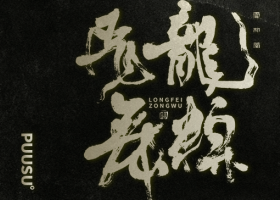 龍飛
粽舞
LONGFEI
ZONGWU
PUUSU